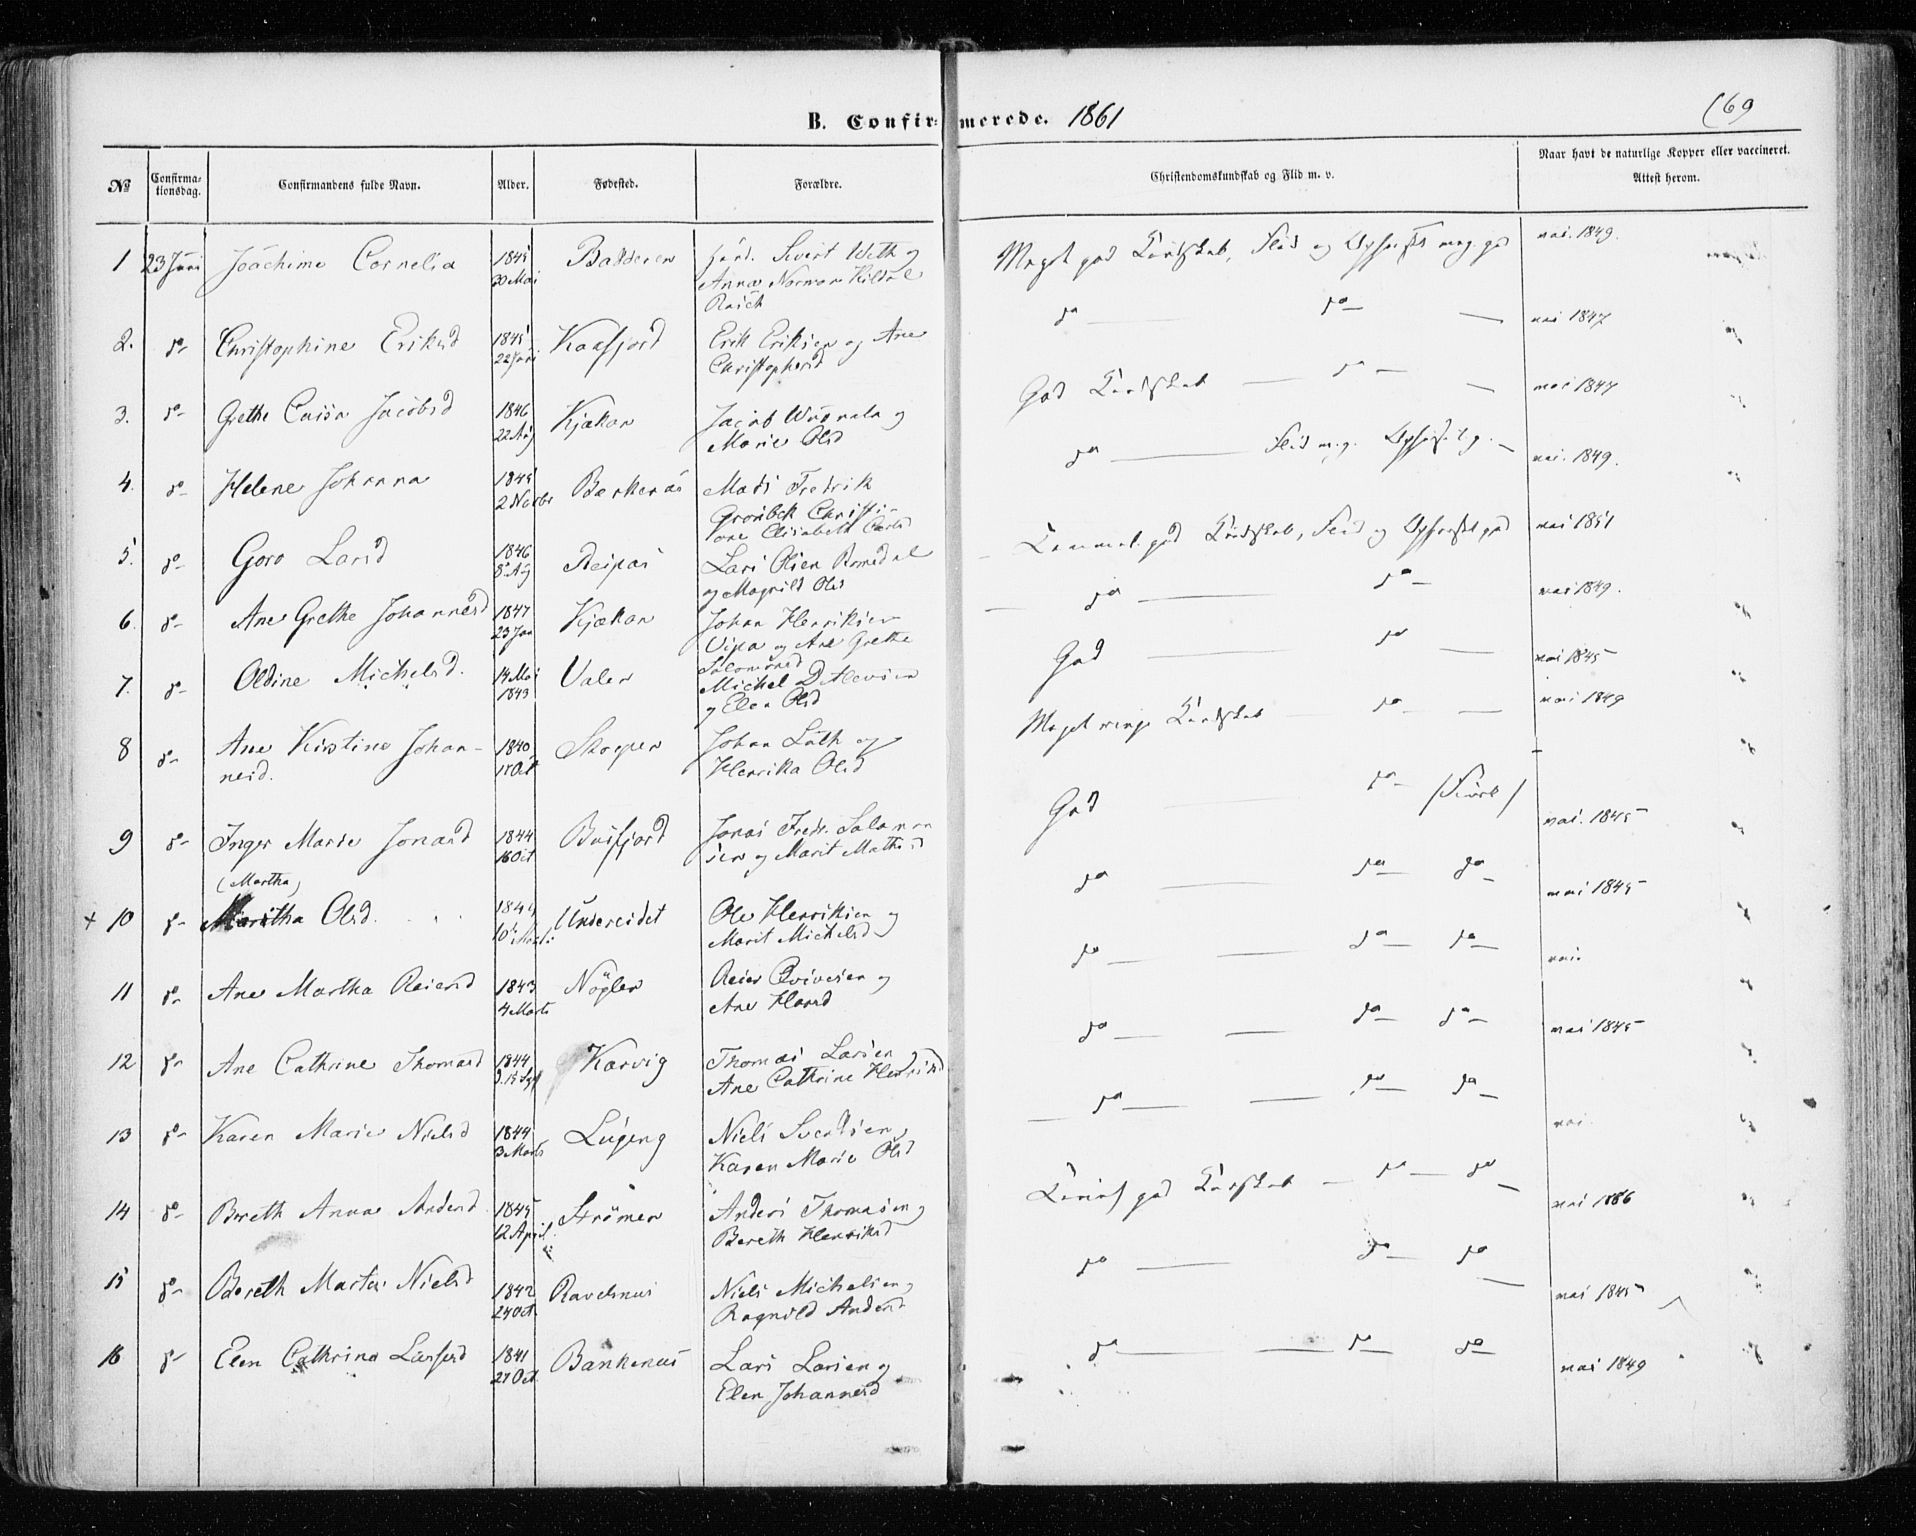 B. Confirmerede. 1861
169
№
Confirmationsdag.
Confirmandens fulde Navn.
Alder.
Fødested.
Forældre.
Christendomskundskab og Flid m. v.
Naar havt de naturlige Kopper eller vaccineret. Attest herom.
1 23 Juni Joachime Cornelia 1845 30 Mai Badderen Hand. Sivert Weth og
Anna Norman Hildal
Rasch
Meget god Kundskab, Flid og Opførsel meg. god vac. 1849.
2. do Christophine Eriksd 1845 22 Juni Kaafjord Erik Eriksen og Ane
Christophersd
do — do — vac 1847
3. do Grethe Caisa Jacobsd 1846 22 Aug Kjækan Jacob Wuonala og
Marie Olsd
God Kundskab — do — vac 1847
4. do Helene Johanna 1845 2 Novbr Bærkenæs Mads Fredrik
Grønbek Christi-
ane Elisabeth Carlsd
do — Flid m.g. Opførsel g. — vac. 1849.
5. do Goro Larsd 1846 8 Aug Reipas Lars Olsen Romsdal
og Magnild Olsd
Temmel. god Kundskab, Flid og Opførsel god vac 1851
6. do Ane Grethe Johannesd 1847 23 Jan Kjækan Johan Henriksen
Vipa og Ane Grethe
Salomonsd
do — do — vac 1849.
7. do Oldine Michelsd. 14 Mai 1843 Valen Michel Detlevsen
og Elen Olsd
God — do — vac 1845
8 do Ane Kirstine Johan-
nesd. 1840 15 Oct Skorpen Johan Luth og
Henrika Olsd
Meget ringe Kundskab — do — vac 1849
9 do Inger Marie Jonasd 1844 16 Oct Busfjord Jonas Fredr. Salamon
sen og Marit Mathisd
God — do — vac. 1845
(Martha)
+ 10 do Maritha Olsd. 1844 10 Marts Undereidet Ole Henriksen og
Marit Michelsd
do — do — do — vac 1845
11 do Ane Martha Reiersd 1843 4 Marts Nøglen Reier Evivesen og
Ane Hansd
do — do — do — vac.
12 do Ane Cathrine Thomasd 1844 Karvig Thomas Larsen
Ane Cathrine Henriksd
do — do — do — vac 1845
13 do Karen Marie Nielsd 1844 3 Marts Niels Svendsen
Karen Marie Olsd
do — do — do — vac
14 do Bereth Anna Andersd 1845 12 April Strømen Anders Thomasen og
Bereth Henriksd
god Kundskab — do — do — vac 1846
15 do Bereth Martha Nielsd 1842 24 Oct. Niels Michelsen og
Ragnild Andersd
do — do — do — vac 1845
16 do Elen Cathrina Larsensd 1841 27 Oct Bankenæs Lars Larsen og
Elen Johannesd
do — do — do — vac 1849